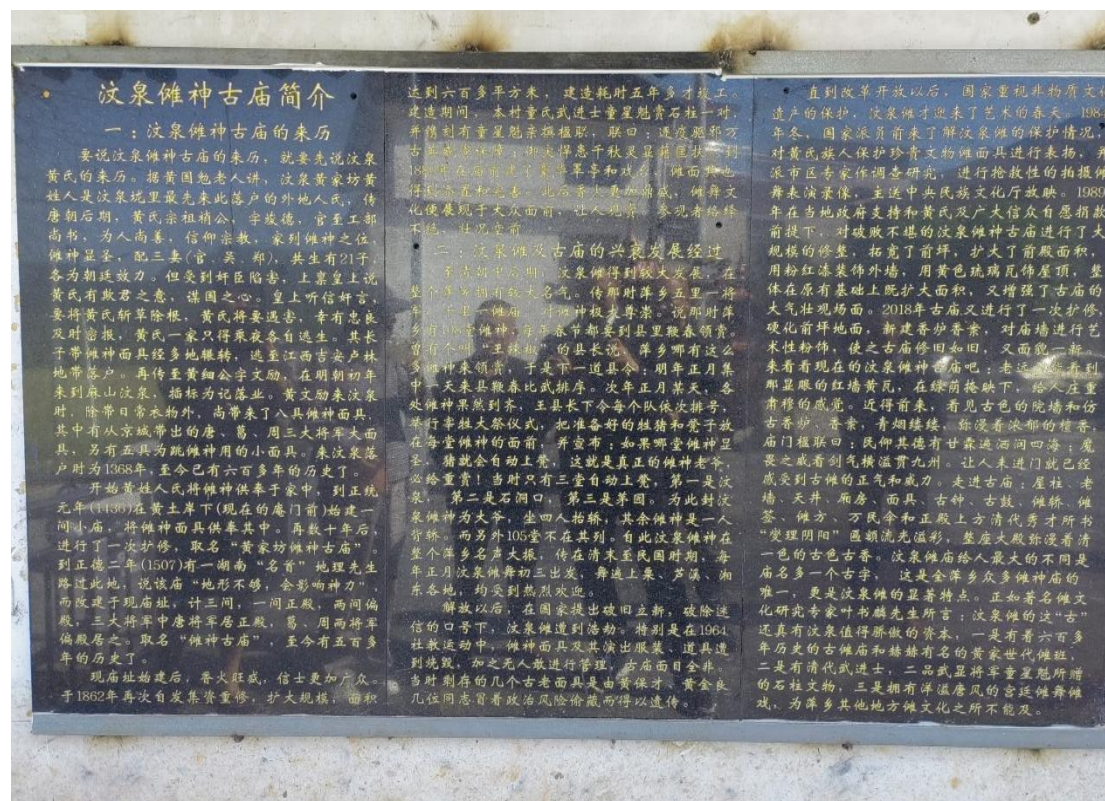 汶泉傩神古庙简介
一：汶泉傩神古庙的来历
要说汶泉傩神古庙的来历，就要先说汶泉
黄氏的来历。据黄国勉老人讲，汶泉黄家坊黄
姓人是汶泉垅里最先来此落户的外地人民，传
唐朝后期，黄氏宗祖梢公，字埈德，官至工部
尚书，为人尚善，信仰宗教，家到傩神之位、
傩神显圣，配三妻(官、吴、郑)，共生有21子，
各为朝廷效力。但受到奸臣陷害，上禀皇上说
黄氏有欺君之意，谋国之心。皇上听信奸言，
要将黄氏斩草除根，黄氏将要遇害，幸有忠良
及时密报，黄氏一家只得乘夜各自逃生。其长
子带傩神面具经多地辗转，逃至江西吉安卢林
地带落户。再传至黄细公字文励，在明朝初年
来到麻山汶泉，插标为记落业。黄文励来汶泉
时，除带日常衣物外，尚带来了八具傩神面具，
其中有从京城带出的唐、葛、周三大将军大面
具，另有五具为跳傩神用的小面具。来汶泉落
户时为1368年，至今已有六百多年的历史了。
开始黄姓人民将傩神供奉于家中，到正统
元年(1436)在黄土岸下(现在的庵门前)始建一
间小庙，将傩神面具供奉其中。再数十年后，
进行了一次扩修，取名“黄家坊傩神古庙”，
到正德二年(1507)有一湖南“名首”地理先生
路过此地，说该庙“地形不够，会影响神力”，
而改建于现庙址，计三间，一间正殿，两间偏
殿，三大将军中唐将军居正殿，葛、周两将军
偏殿居之。取名“傩神古庙”，至今有五百多
年的历史了。
现庙址始建后，香火旺盛，信士更加广众。
于1862年再次自发集资重修，扩大规模，面积
达到六百多平方米，建造耗时五年多才竣工。
建造期间，本村童氏武进士童星魁赏石柱一对，
并携刻有童星魁亲撰楹联，联曰：逐疫驱邪万
古
千秋灵显
年在庙前建了
此后香火更加鼎盛，傩舞文
化便展现于大众面前，让人观赏，参观者络绎
不绝，壮况空前。
二：汶泉傩及古庙的兴衰发展经过
至清朝中后期，汶泉傩得到较大发展，在
整个萍乡拥有较大名气。传那时萍乡五里一将
军，十里一傩庙，对傩神极大尊崇。说那时萍
乡有108堂傩神，每年春节都要到县里鞭春领赏，
曾有个叫 的县长说，萍乡哪有这么
多傩神来领赏，于是下一道县令：明年正月集
中一天来县鞭春比武排序。次年正月某天，各
处傩神果然到齐，王县长下令每个队依次排号，
举行宰牲大祭仪式，把准备好的牲猪和凳子放
在每堂傩神的面前，并宣布：如果哪堂傩神显
圣，猪就会自动上凳，这就是真正的傩神老爷，
必给重赏！当时只有三堂自动上凳，第一是汶
泉，第二是石洞口，第三是茅园。为此封汶
泉傩神为大爷，坐四人抬轿，其余傩神是一人
背轿。而另外105堂不在其列。自此汶泉傩神在
整个萍乡名声大振，传在清末至民国时期，每
年正月汶泉傩舞初三出发，舞遍上栗、芦溪、湘
东各地，均受到热烈欢迎。
解放以后，在国家提出破旧立新，破除迷
信的口号下，汶泉傩遭到浩劫。特别是在1964
社教运动中，傩神面具及其演出服装、道具遭
到烧毁，加之无人敢进行管理，古庙面目全非。
当时剩存的几个古老面具是由黄保才、黄金良
几位同志冒着政治风险偷藏而得以遗传。
直到改革开放以后，国家重视非物质文化
遗产的保护，汶泉傩才迎来了艺术的春天。198
年冬，国家派员前来了解汶泉傩的保护情况，
对黄氏族人保护珍贵文物傩面具进行表扬，并
派市区专家作调查研究，进行抢救性的拍摄傩
舞表演录像，主送中央民族文化厅放映。1989
年在当地政府支持和黄氏及广大信众自愿捐款
前提下，对破败不堪的汶泉傩神古庙进行了大
规模的修整，拓宽了前坪，扩大了前殿面积，
用粉红漆装饰外墙，用黄色琉璃瓦饰屋顶，整
体在原有基础上既扩大面积，又增强了古庙的
大气壮观场面。2018年古庙又进行了一次护修，
硬化前坪地面，新建香炉香案，对庙墙进行艺
术性粉饰，使之古庙修旧如旧，又面貌一新。
来看看现在的汶泉傩神古庙吧：老远就能看到
那显眼的红墙黄瓦，在绿荫掩映下，给人庄重
肃穆的感觉。近得前来，看见古色的院墙和仿
古香炉、香案，青烟缕缕，弥漫着浓郁的檀香，
庙门楹联曰：民仰其德有甘霖遍洒润四海；魔
畏之威看剑气横溢贯九州。让人未进门就已经
感受到古傩的正气和威力。走进古庙：屋柱、老
墙、天井、厢房、面具、古钟、古鼓、傩轿、傩
签、傩方、万民伞和正殿上方清代秀才所书
“燮理阴阳”匾额流光溢彩，整座大殿弥漫着清
一色的古色古香。汶泉傩庙给人最大的不同是
庙名多一个古字，这是全萍乡众多傩神庙的
唯一，更是汶泉傩的显著特点。正如著名傩文
化研究专家叶书麟先生所言：汶泉傩的这“古”
还具有汶泉值得骄傲的资本，一是有着六百多
年历史的古傩庙和赫赫有名的黄家世代傩班，
二是有清代武进士，二品武显将军童星魁所赠
的石柱文物，三是拥有洋溢唐风的宫廷傩舞傩
戏，为萍乡其他地方傩文化之所不能及。